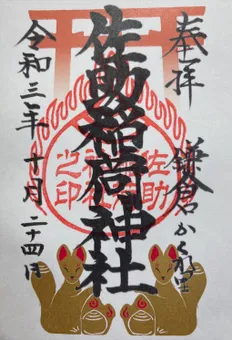 奉拝
鎌倉かくれ里
佐助稲荷神社
佐助
之印
令和三年十月二十四日